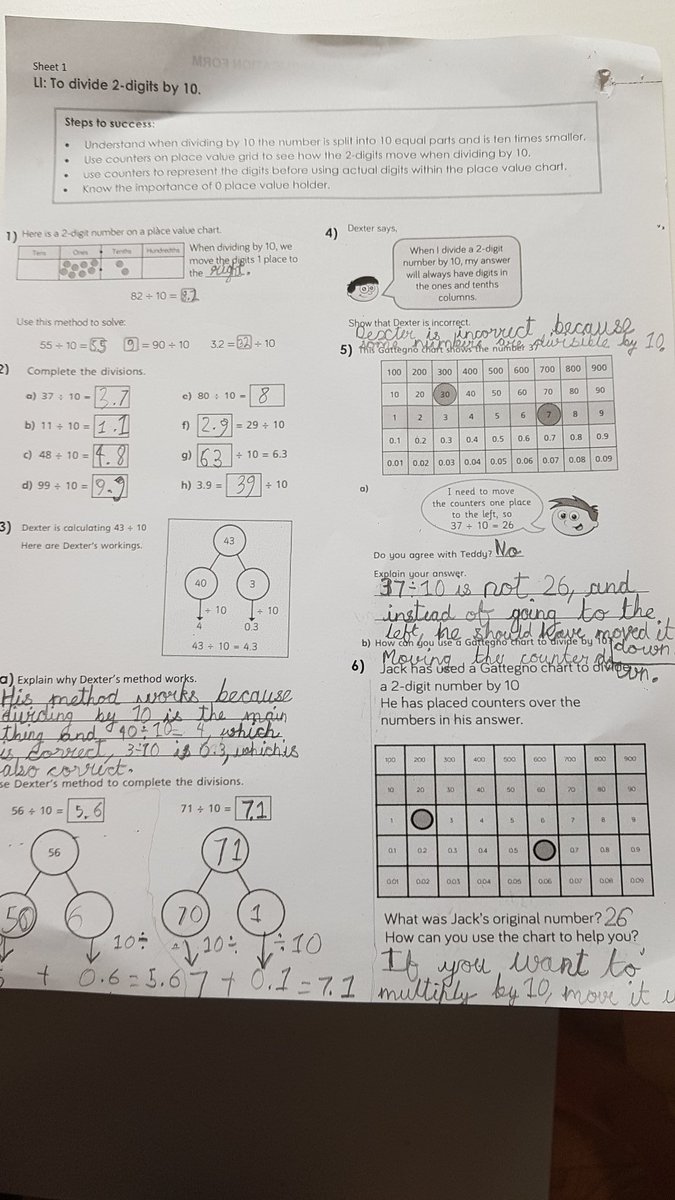 Sheet 1
LI: To divide 2-digits by 10.
Steps to success:
• Understand when dividing by 10 the number is split into 10 equal parts and is ten times smaller.
• Use counters on place value grid to see how the 2-digits move when dividing by 10.
• use counters to represent the digits before using actual digits within the place value chart.
• Know the importance of 0 place value holder.
1) Here is a 2-digit number on a place value chart.
Tens Ones Tenths Hundredths
When dividing by 10, we
move the digits 1 place to
the right.
82 ÷ 10 = 8.2
Use this method to solve:
55 ÷ 10 = 5.5 9 = 90 ÷ 10 3.2 = 32 ÷ 10
2) Complete the divisions.
a) 37 ÷ 10 = 3.7 e) 80 ÷ 10 = 8
b) 11 ÷ 10 = 1.1 f) 2.9 = 29 ÷ 10
c) 48 ÷ 10 = 4.8 g) 63 ÷ 10 = 6.3
d) 99 ÷ 10 = 9.9 h) 3.9 = 39 ÷ 10
3) Dexter is calculating 43 ÷ 10
Here are Dexter's workings.
43
40 3
÷ 10 ÷ 10
4 0.3
43 ÷ 10 = 4.3
a) Explain why Dexter's method works.
His method works because
dividing by 10 is the main
thing and 40÷10= 4, which
is correct, 3÷10 is 0.3, which is
also correct.
se Dexter's method to complete the divisions.
56 ÷ 10 = 5.6 71 ÷ 10 = 7.1
56 71
50 6 70 1
10÷ 10÷ ÷10
+ 0.6 = 5.6 7 + 0.1 = 7.1
4) Dexter says,
When I divide a 2-digit
number by 10, my answer
will always have digits in
the ones and tenths
columns.
Show that Dexter is incorrect.
Dexter is incorrect because
some numbers are divisible by 10.
5) This Gattegno chart shows the number 37
100 200 300 400 500 600 700 800 900
10 20 30 40 50 60 70 80 90
1 2 3 4 5 6 7 8 9
0.1 0.2 0.3 0.4 0.5 0.6 0.7 0.8 0.9
0.01 0.02 0.03 0.04 0.05 0.06 0.07 0.08 0.09
a)
I need to move
the counters one place
to the left, so
37 ÷ 10 = 26
Do you agree with Teddy? No
Explain your answer.
37÷10 is not 26, and
instead of going to the
left, he should have moved it
down
b) How can you use a Gattegno chart to divide by 10?
Moving the counter down.
6) Jack has used a Gattegno chart to divide
a 2-digit number by 10
He has placed counters over the
numbers in his answer.
100 200 300 400 500 600 700 800 900
10 20 30 40 50 60 70 80 90
1 3 4 5 6 7 8 9
0.1 0.2 0.3 0.4 0.5 0.7 0.8 0.9
0.01 0.02 0.03 0.04 0.05 0.06 0.07 0.08 0.09
What was Jack's original number? 26
How can you use the chart to help you?
If you want to
multiply by 10, move it